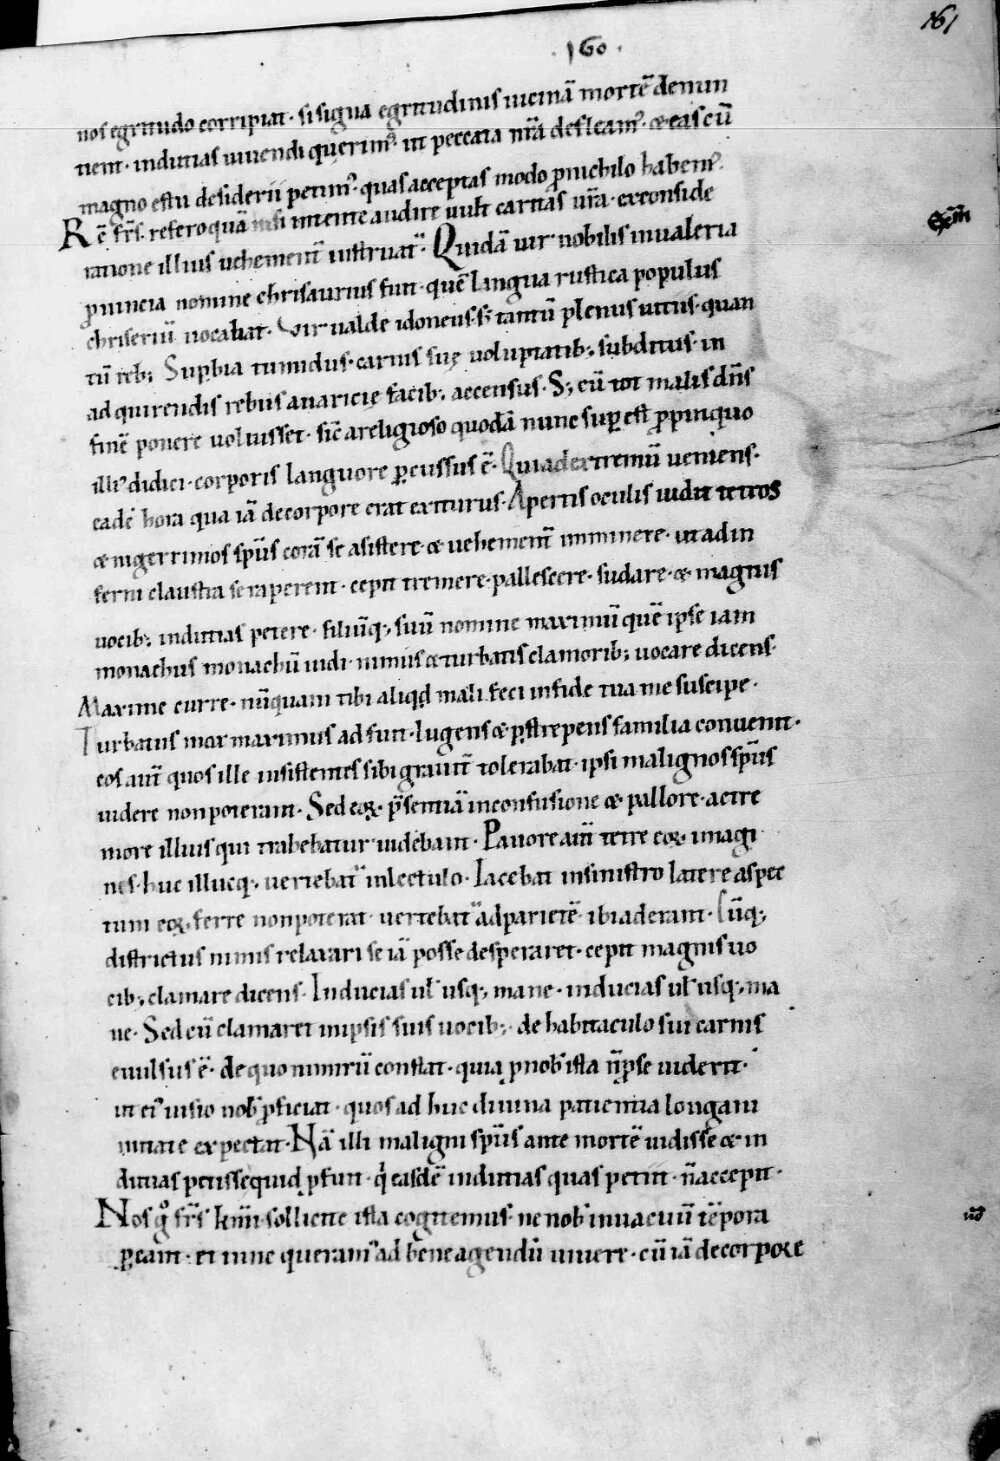 161
·160·
nos egritudo corripiat · si signa egritudinis uicinā mortē denun
tient · indutias uiuendi querim᷒ · ut peccata nr̄a defleam᷒ · & eas cū
magno estu desiderii petim᷒ · quas acceptas modo ꝓ nichilo habem᷒ ·
Rē fr̄s · refero quā nisi intente audire uult caritas ur̄a · ex conside
ratione illius uehement̄ instruat᷒ · Quidā uir nobilis in ualeria
ꝓuincia nomine chrisaurius fuit · quē lingua rustica populus
chriseriū uocabat · Vir ualde idoneus · s; tantū plenus uitiis · quan
tū reb; Supbia tumidus · carnis suę uoluptatib; subditus · in
adquirendis rebus auaricię facib; accensus · S; cū tot malis dn̄s
finē ponere uoluisset · sic̄ a religioso quodā nunc sup est ꝓpinquo
illi᷒ didici · corporis languore ꝑcussus ē · Qui ad extremū ueniens ·
eadē hora qua iā de corpore erat exiturus · Apertis oculis uidit tetros
& nigerrimos sp̄us corā se asistere · & uehement̄ imminere · ut ad in
ferni claustra se raperent · cepit tremere · pallescere · sudare · & magnis
uocib; indutias petere · filiūq; suū nomine maximū quē ipse iam
monachus monachū uidi · nimiis & turbatis clamorib; uocare dicens ·
Maxime curre · nūquam tibi aliqd mali feci in fide tua me suscipe ·
Turbatus mox maximus adfuit · lugens & ꝑstrepens familia conuenit ·
eos aut̄ quos ille insistentes sibi grauit̄ tolerabat · ipsi malignos sp̄us
uidere non poterant · Sed eoꝝ p̄sentiā in confusione & pallore · ac tre
more illius qui trahebatur uidebant · Pauore aut̄ tetre eoꝝ imagi
nis · huc illucq; uertebat᷒ in lectulo · Iacebat in sinistro latere aspec
tum eoꝝ ferre non poterat · uertebat᷒ ad parietē · ibi aderant · Cūq;
districtus nimis relaxari se iā posse desperaret · cepit magnis uo
cib; clamare dicens · Inducias ul̄ usq; mane · inducias ul̄ usq; ma
ne · Sed cū clamaret in ipsis suis uocib; · de habitaculo sui carnis
euulsus ē · de quo nimirū constat · quia ꝓ nob᷒ ista n̄ ꝓ se uiderit ·
ut ei᷒ uisio nob᷒ ꝓficiat · quos adhuc diuina patientia longani
mitate expectat · Nā illi maligni sp̄us ante mortē uidisse & in
dutias petisse quid ꝓfuit · q̇ easdē indutias quas petiit · n̄ accepit ·
Nos g̊ fr̄s km̄i · sollicite ista cogitemus · ne nob᷒ in uacuū tēpora
ꝑeant · et tunc queram᷒ ad bene agendū uiuere · cū iā de corpore